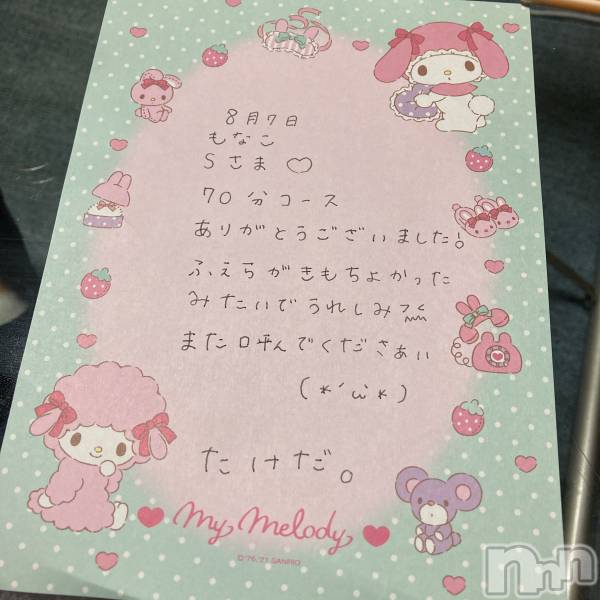 8月7日
もなこ
Sさま♡
70分コース
ありがとうございました!
ふぇらがきもちよかった
みたいでうれしみ
また呼んでくださぁい
(*´ω`*)
たけだ。
My Melody
©'76,'21 SANRIO
nmn